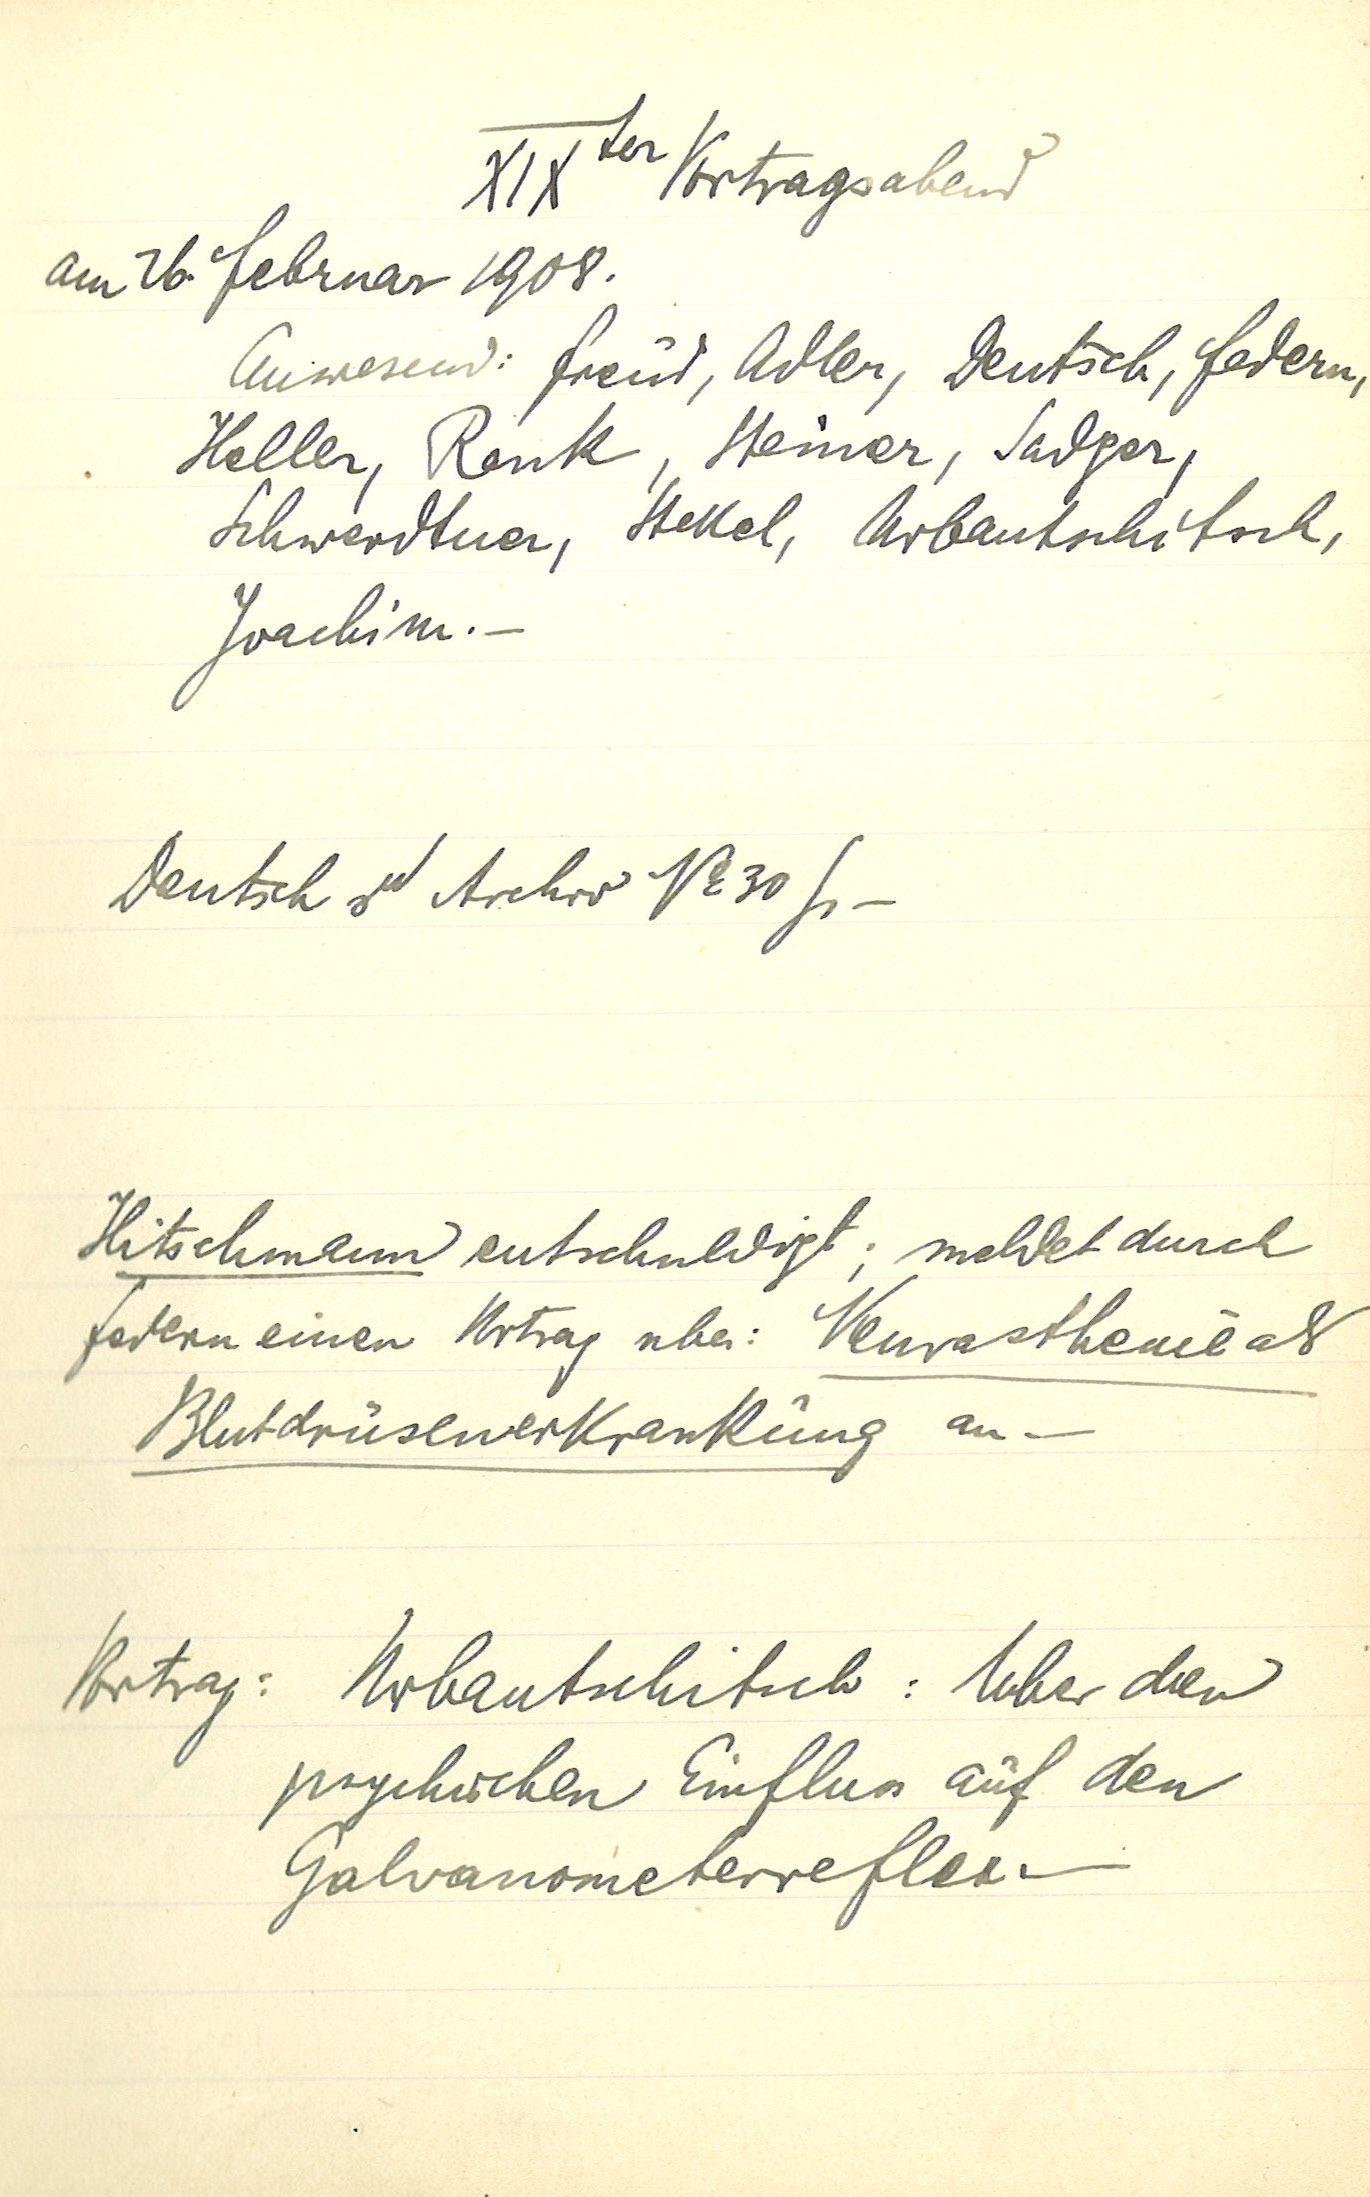 XIXter Vortragsabend
am 26. Februar 1908.
Anwesend: Freud, Adler, Deutsch, Federn,
Heller, Rank, Steiner, Sadger,
Schwerdtner, Stekel, Urbantschitsch,
Joachim. –
Deutsch Archiv No 30
Hitschmann entschuldigt; meldet durch
Federn einen Vortrag über: Neurasthenie als
Blutdrüsenerkrankung an –
Vortrag: Urbantschitsch: Über den
psychischen Einfluss auf den
Galvanometerreflex. –